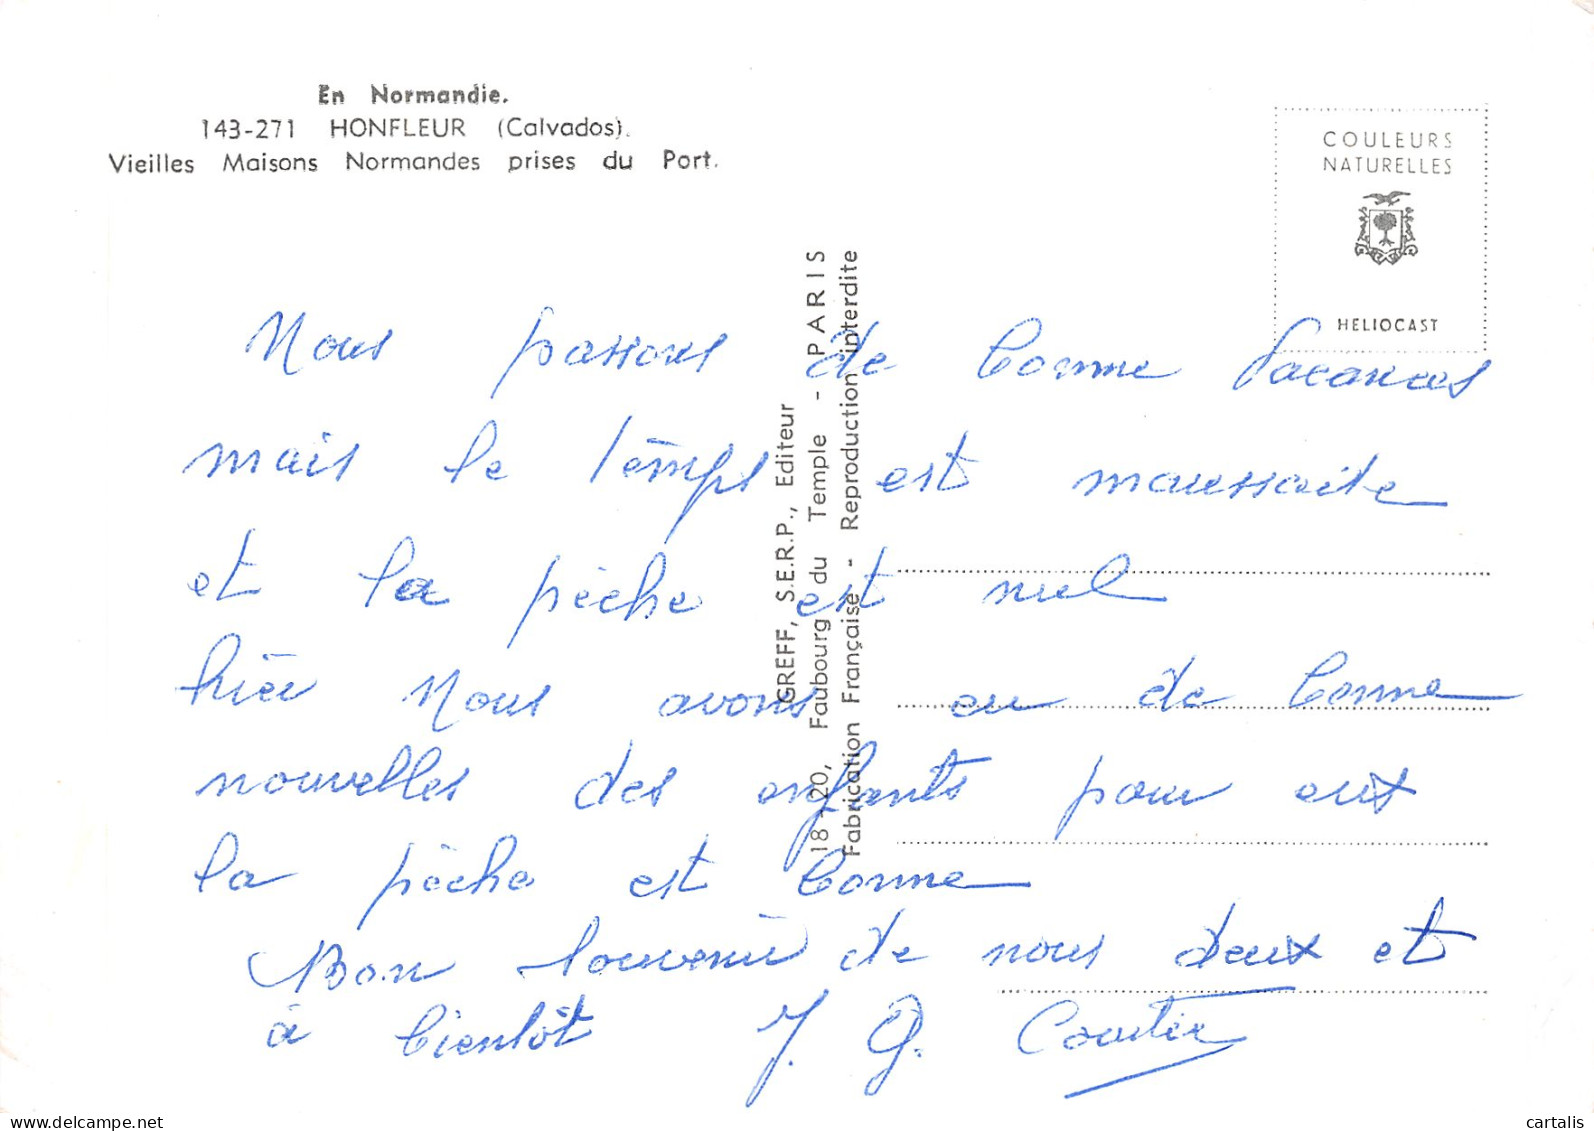 En Normandie.
143-271 HONFLEUR (Calvados).
Vieilles Maisons Normandes prises du Port.
COULEURS
NATURELLES
HELIOCAST
GREFF, S.E.R.P., Editeur
18-20, Faubourg du Temple - PARIS
Fabrication Française - Reproduction interdite
Nous passons de bonne vacances
mais le temps est maussade
et la pêche est nul
hier nous avons eu de bonne
nouvelles des enfants pour eux
la pêche est bonne
Bon souvenir de nous deux et
à bientôt J. G. Coutier
delcampe.net
cartalis